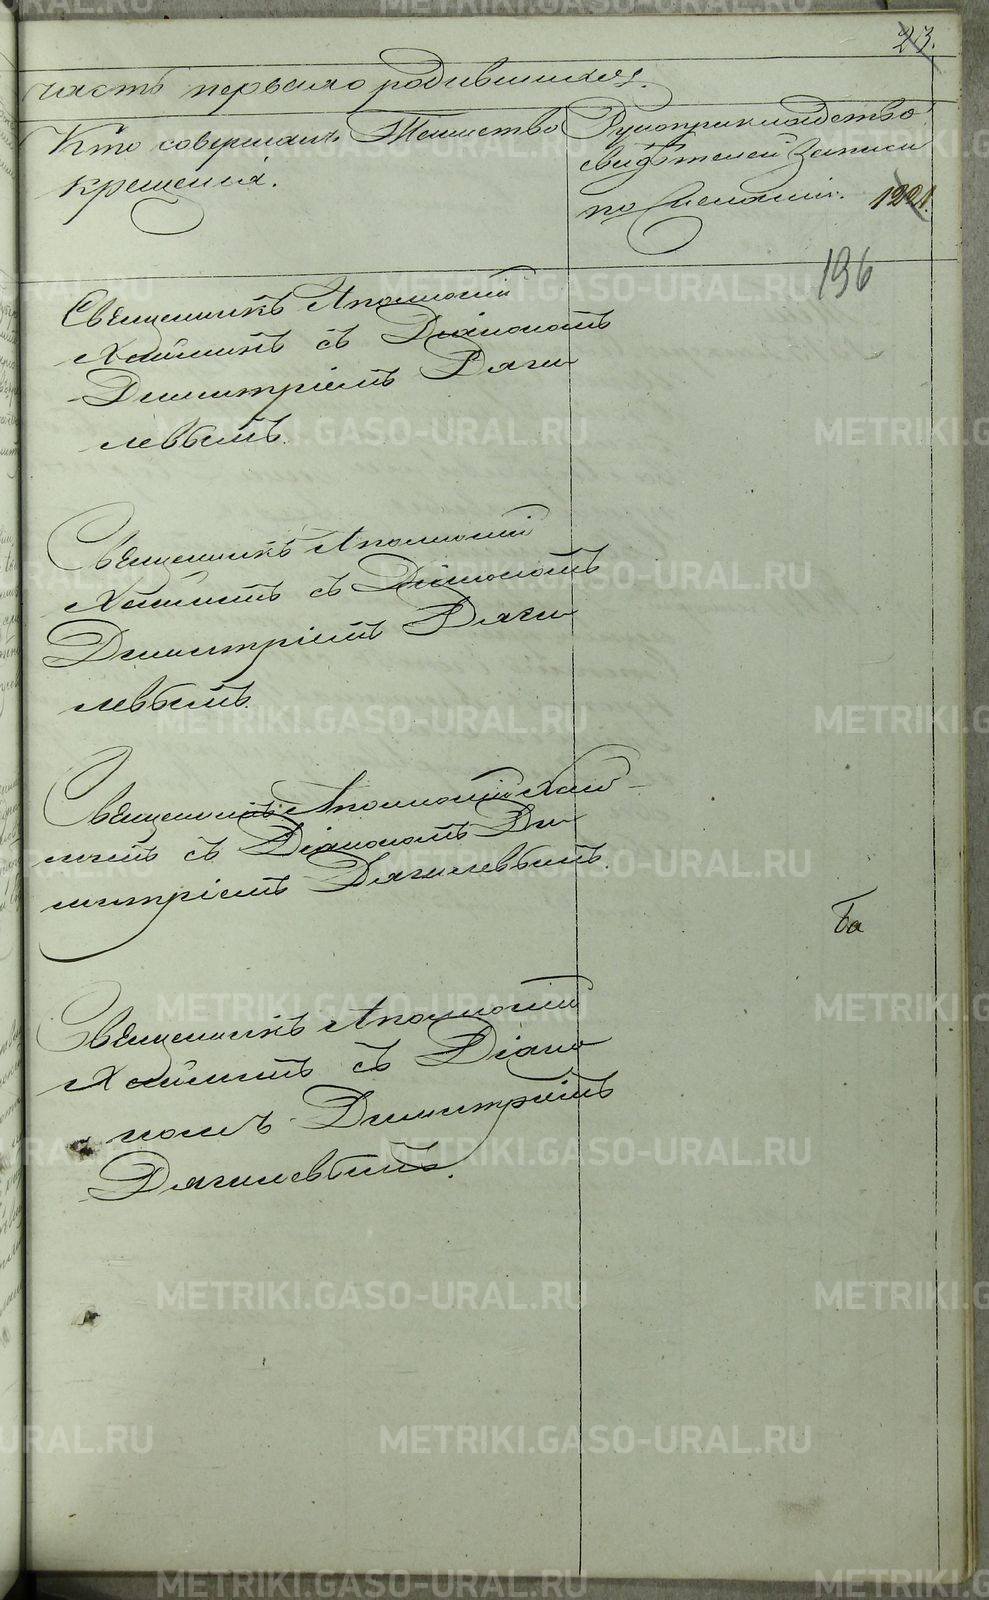 23.
часть первая о родившихся.
Кто совершалъ Таинство
крещенія.
Рукоприкладство
свидѣтелей записи
по желанію.
1221.
196
Священникъ Аполлоній
съ Діакономъ
Димитріемъ Дяги
левымъ.
Священникъ Аполлоній
съ Діакономъ
Димитріемъ Дяги
левымъ.
Священникъ Аполлоній
съ Діакономъ Ди
митріемъ Дягилевымъ.
Священникъ Аполлоній
съ Діако
номъ Димитріемъ
Дягилевымъ.
METRIKI.GASO-URAL.RU